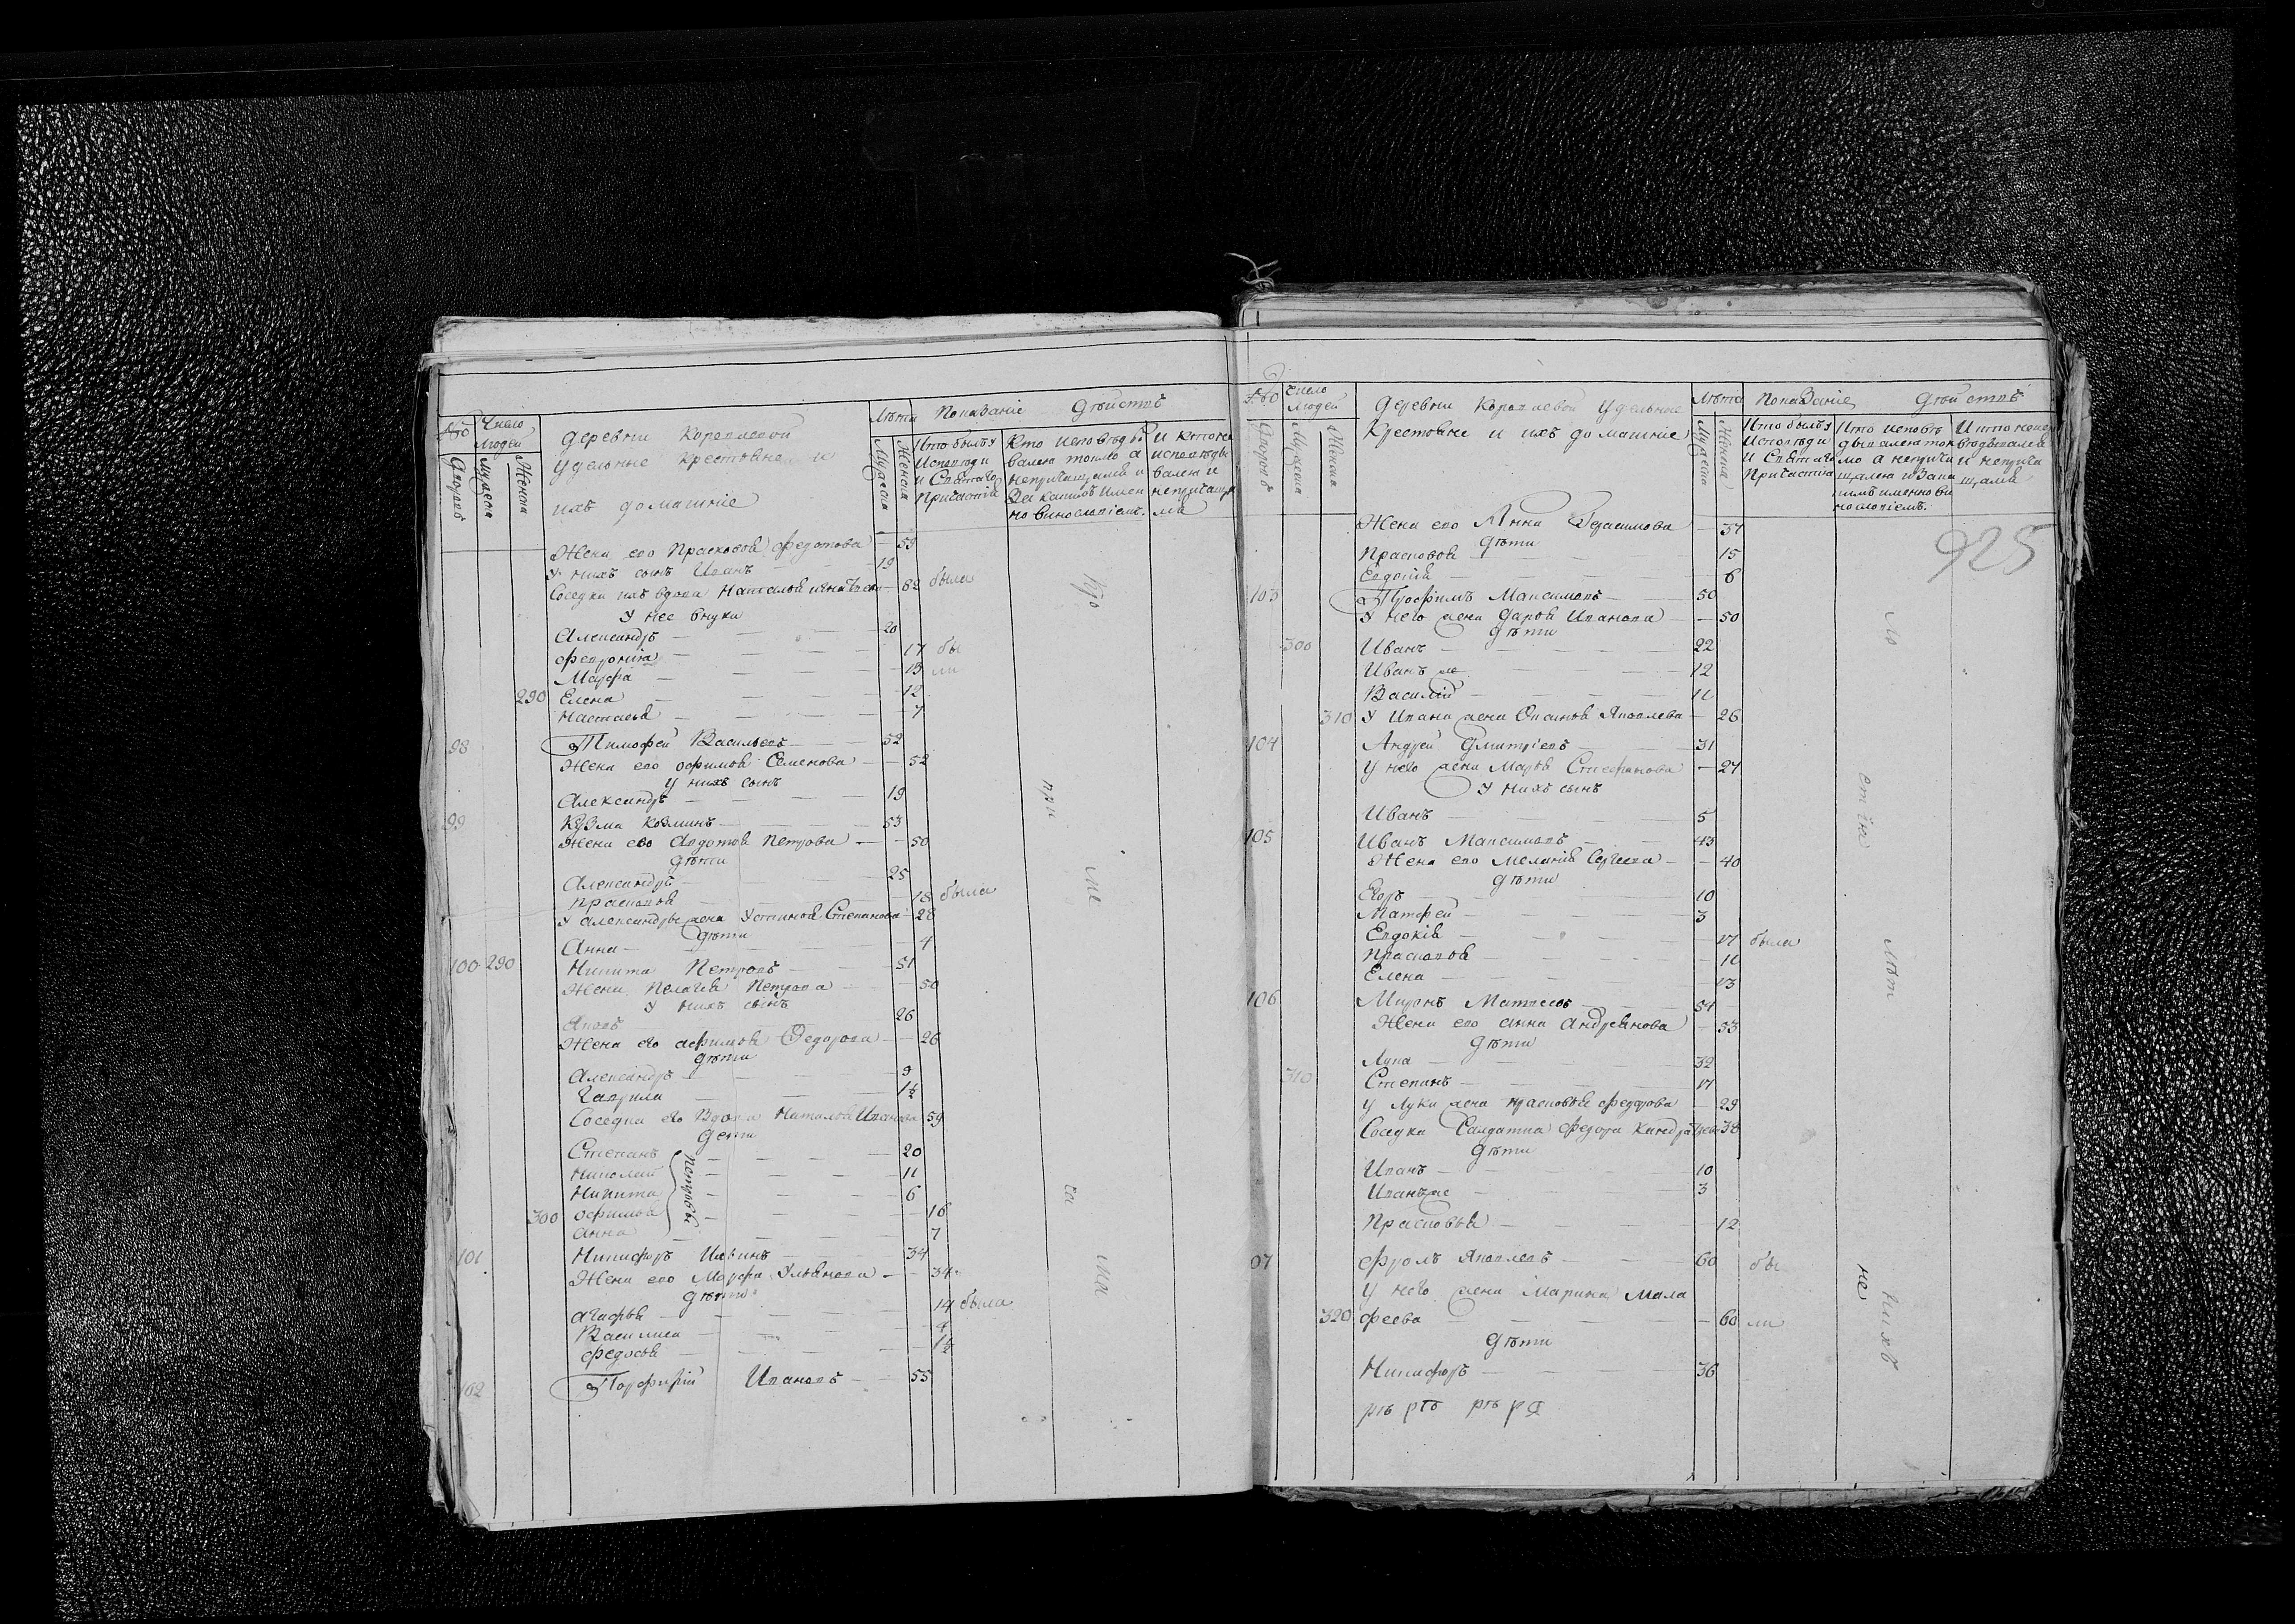 №
Число людей
Лѣта
Показаніе Дѣйствъ
Дворовъ
Мужеска
Женска
Деревни Королевой
Удельные Крестьяне и
ихъ домашніе
Мужеска
Женска
Кто былъ у
Исповѣди
и Святаго
Причастія
Кто исповѣды
вался токмо а
непричащался и
за какимъ имен
но винословіемъ.
И кто не
исповѣды
вался и
непричаща
лся
Жена его Прасковья Федотова — 59
У нихъ сынъ Иванъ 19
Соседка ихъ вдова Наталья — 62 была
У нее внуки
Александръ 20
Феврония 17 бы
Марфа 13 ли
290 Елена 12
Настасья 7
98 Тимофей Васильевъ 52
Жена его Офимья Семенова 52
У нихъ сынъ
Александръ 19
99 Кузма Козминъ 53
Жена ево Авдотья Петрова 50
Дѣти
Александръ 25
Прасковья 18 была
У Александра жена Устинья Степанова 28
Дѣти
Анна 4
100 290 Никита Петровъ 51
Жена Пелагея Петрова 50
У нихъ сынъ
Яковъ 26
Жена его Афимья Федорова 26
Дѣти
Александръ 9
Гаврила 1½
Соседка его Вдова Наталья Иванова 59
Дети
Степанъ 20
Николай 11
Никита 6
Петровы
300 Офимья 16
Анна 7
101 Никифоръ Ильинъ 34
Жена его Марфа Ульянова 34
Дѣти
Агафья 14 была
Василиса 4
Федосья 1½
102 Порфирій Ивановъ 55
№
Число
Людей
Деревни Королевой Удельные
Крестьяне и ихъ домашніе
Лѣта
Показаніе Дѣйствъ
Дворовъ
Мужеска
Женска
Мужеска
Женска
Кто былъ у
Исповѣди
И Святаго
Причастія
Кто исповѣ
дывался ток
мо а неприча
щался и за ка
кимъ именно ви
нословіемъ.
И кто неиспо
вѣдывался
и неприча
щался
925
Жена его Анна Герасимова — 37
Дѣти
Прасковья 15
Евдокія 6
103 Трофимъ Максимовъ 50
У него жена Дарья Иванова — 50
Дѣти
300 Иванъ 22
Иванъ же 12
Василій 11
310 У Ивана жена Оксинья Яковлева — 26
104 Андрей Дмитріевъ 31
У него жена Марья Стефанова — 27
У нихъ сынъ
Иванъ 5
105 Иванъ Максимовъ 43
Жена его Меланія Сергеева — 40
Дѣти
Егоръ 10
Матфей 3
Евдокія 17 была
Прасковья 11
Елена 13
106 Миронъ Матвеевъ 54
Жена его Анна Андреянова — 53
Дѣти
Лука 32
310 Степанъ 17
У Луки жена Прасковья Федорова — 29
Соседка Салдатка Федора Кандратьева 38
Дѣти
Иванъ 10
Иванъ же 3
Прасковья 12
107 Фролъ Яковлевъ 60 бы
У него жена Марина Мала
320 феева — 60 ли
Дѣти
Никифоръ 36